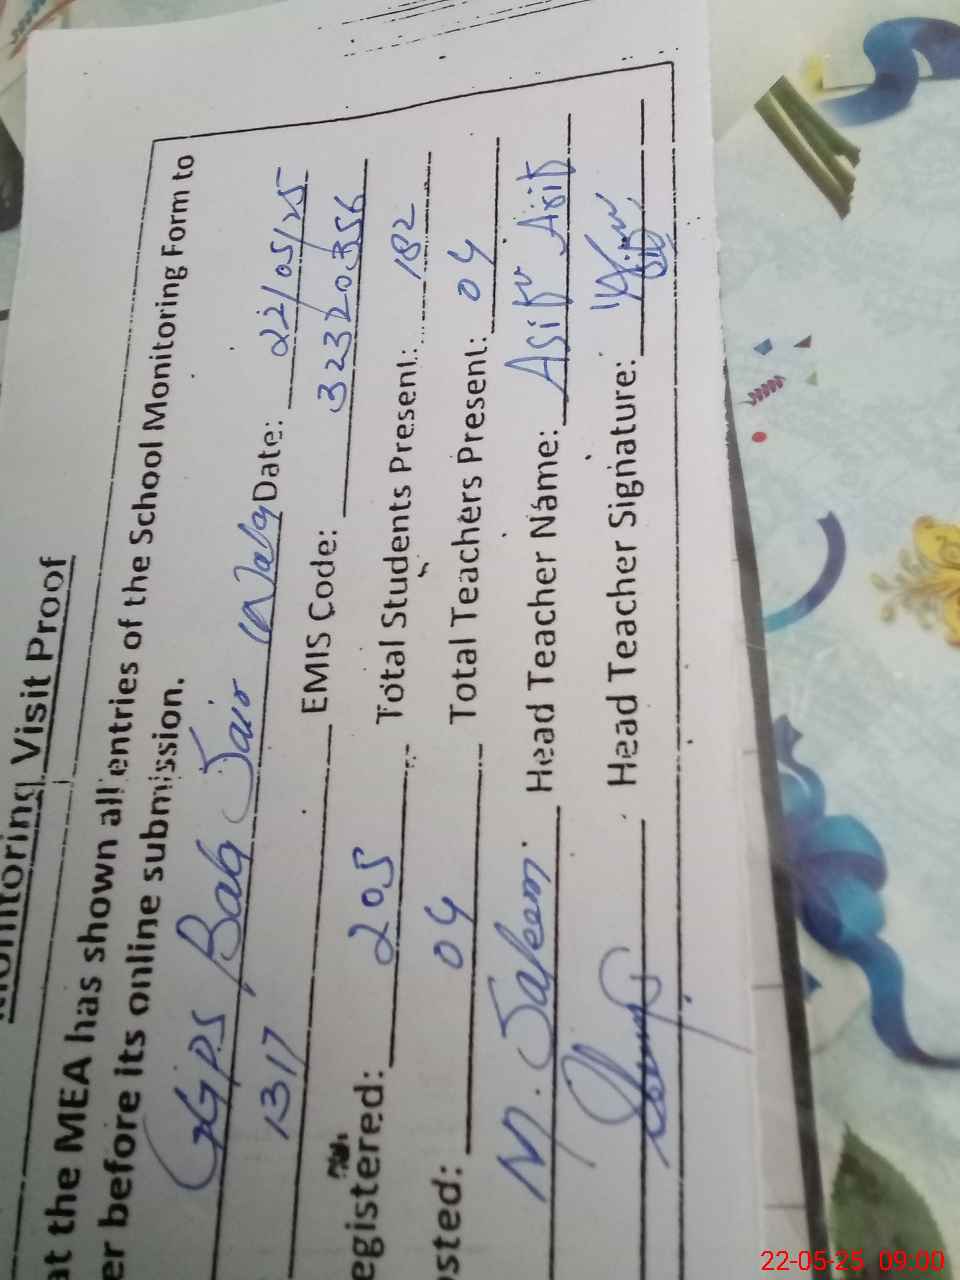 Monitoring Visit Proof
at the MEA has shown all entries of the School Monitoring Form to
er before its online submission.
GGPS Baly Jair Waly Date: 22/05/25
1317 EMIS Code: 32320356
egistered: 205 Total Students Present: 182
osted: 04 Total Teachers Present: 04
M. Saleem Head Teacher Name: Asifa Asif
Head Teacher Signature:
22-05-25 09:00